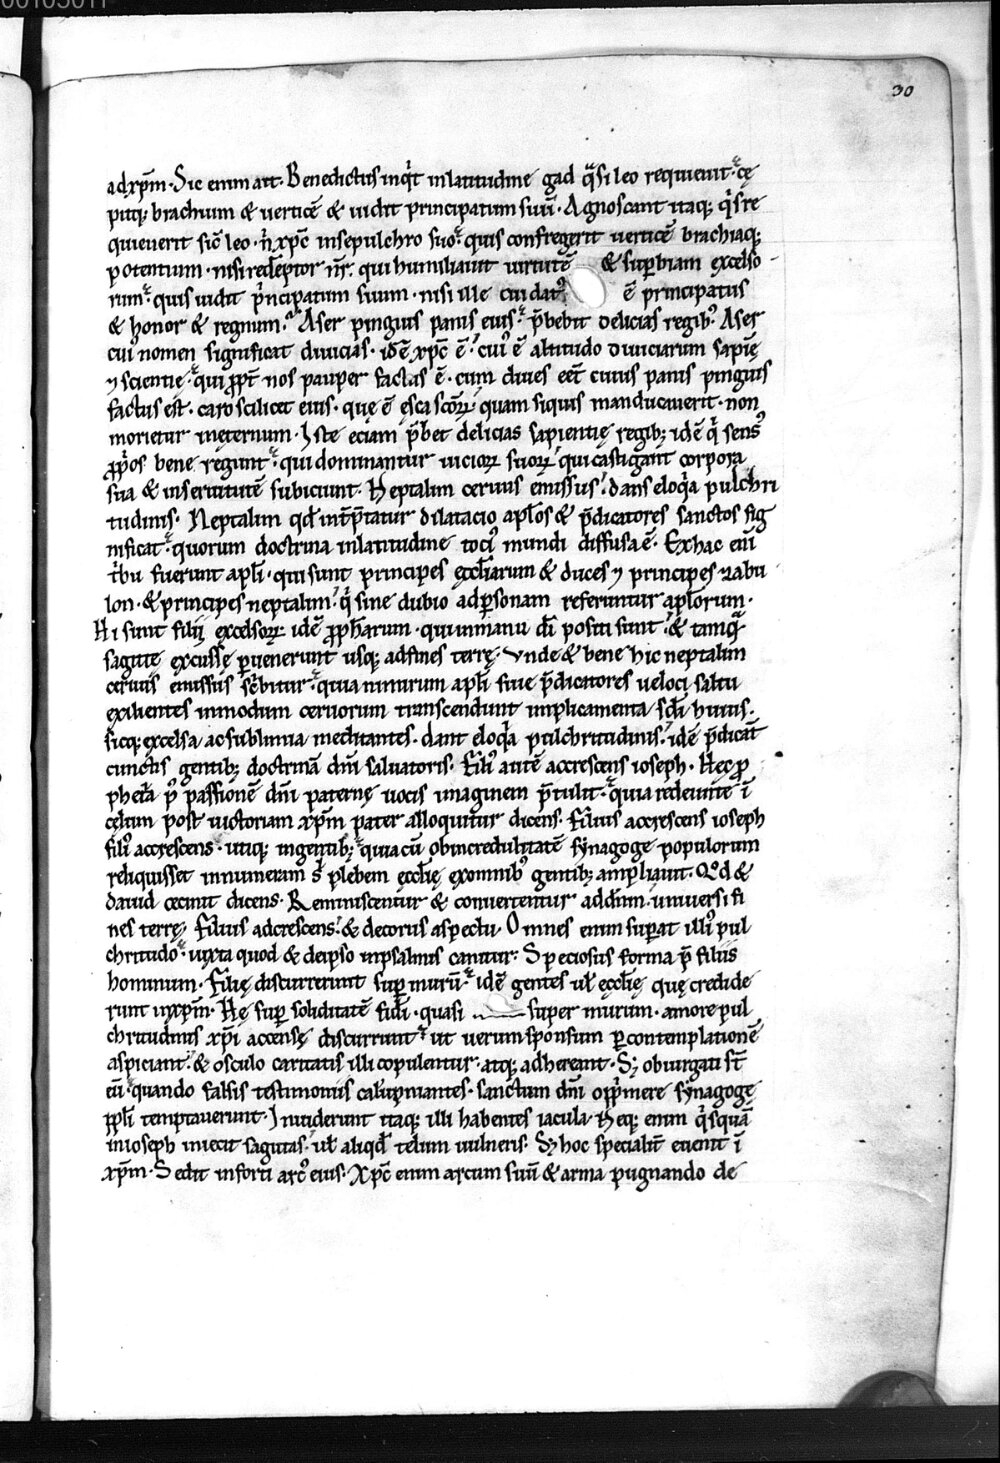 30
adxp̄m. Sic enim ait. Benedictus inq̇t inlatitudine gad q̄si leo requieuit. ce
pitq; brachium & uerticē & uidit principatum suū. Agnoscant itaq; q̇s re
quieuerit sic̄ leo. n̄ xp̄c insepulchro suo. quis confregerit uerticē brachiaq;
potentum. nisi redēptor nr̄. qui humiliauit uirtutē & sup̄biam excelso
rum. quis uidit ṗncipatum suum. nisi ille cui dat᷒ ē principatus
& honor & regnum. Aser pinguis panis eius. p̄bebit delicias regib᷒. Aser
cui᷒ nomen significat diuicias. idē xp̄c ē. cui᷒ ē altitudo diuiciarum sapiē
⁊ scientię. qui pp̄t nos pauper factus ē. cum diues eēt cuius panis pinguis
factus est. caro scilicet eius. quę ē esca scōꝝ quam siquis manducauerit. non
morietur inęternum. Iste eciam p̄bet delicias sapientię regib; idē q̇ sens᷒
pp̄os bene regunt. qui dominantur uicioꝝ suoꝝ qui castigant corpora
sua & inseruitutē subiciunt. Neptalim ceruus emissus. dans eloq̇a pulchri
tudinis. Neptalim qd̄ int̄p̄tatur dilatacio apl̄os & p̄dicatores sanctos sig
nificat. quorum doctrina inlatitudine toci᷒ mundi diffusa ē. Exhac enī
ṫbu fuerunt apl̄i. qui sunt principes ęccl̄iarum & duces ⁊ principes zabu
lon. & principes neptalim. q̇ sine dubio adp̄sonam referuntur apl̄orum.
Hi sunt filij excelsoꝝ idē pp̄harum. qui inmanu dī positi sunt. & tamq̄
sagitte excussę p̄uenerunt usq; adfines terrę. Vnde & bene hic neptalim
ceruus emissus sc̄bitur. quia nimirum apl̄i siue p̄dicatores ueloci saltu
exilientes inmodum ceruorum transcendunt implicamenta sc̄li huius.
sicq; excelsa ac sublimia meditantes. dant eloq̇a pulchritudinis. idē p̄dicat̄
cunctis gentib; doctrinā dn̄i saluatoris. Fili᷒ autē accrescens ioseph. Hec p̄
pheta p᷒ passionē dn̄i paternę uocis imaginem p̄tulit. quia redeunte ī
cęlum post uictoriam xp̄m pater alloquitur dicens. Filius accrescens ioseph
fili᷒ accrescens. utiq; ingentib; quia cū obincredulitatē synagogę populorum
reliquisset innumeram s; plebem ęccl̄ię exomnib᷒ gentib; ampliauit. Qd̄ &
dauid cecinit dicens. Reminiscentur & conuertentur addn̄m. uniuersi fi
nes terrę. Filius adcrescens. & decorus aspectu. Omnes enim sup̄at illi᷒ pul
chritudo. iuxta quod & deipso inpsalmis canitur. Speciosus forma p̄ filiis
hominum. Filię discurrerunt sup̄ murū. idē gentes ul̄ ęccl̄ię quę credide
runt inxp̄m. Hę sup̄ soliditatē fidī. quasi super murum. amore pul
chritudinis xp̄i accensę discurrunt. ut uerum sponsum p̄contemplationē
aspiciant. & osculo caritatis illi copulentur. atq; adhereant. Sꝫ obiurgati st̄
eū. quando falsis testimoniis calūpniantes. sanctum dn̄i opṗmere synagogę
pp̄li temptauerunt. Inuiderunt itaq; illi habentes iacula. Neq; enim q̇squā
inioseph iniecit sagittas. ul̄ aliqd̄ telum uulneris. Sꝫ hoc specialit̄ euenit ī
xp̄m. Sedit inforti arc᷒ eius. Xp̄c enim arcum suū & arma pugnando de